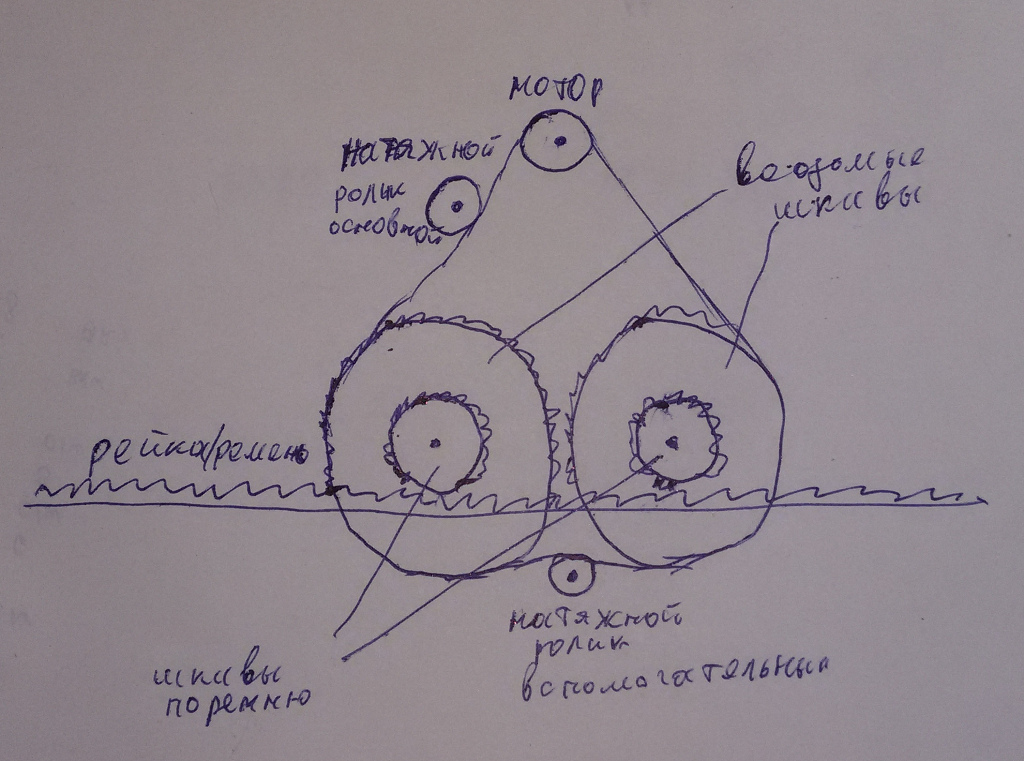 мотор
натяжной
ролик
основной
ведомые
шкивы
рейка/ремень
натяжной
ролик
вспомагательный
шкивы
по ремню